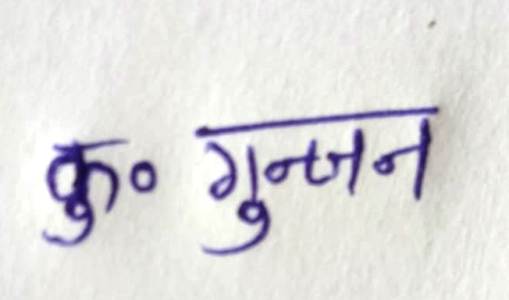 कु० गुन्जन